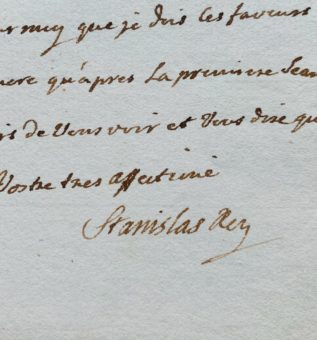 muy que je dois ces faveurs
qu'apres La premiere sean
de Vous voir et Vous dire qu
Vostre tres affectioné
Stanislas Roy